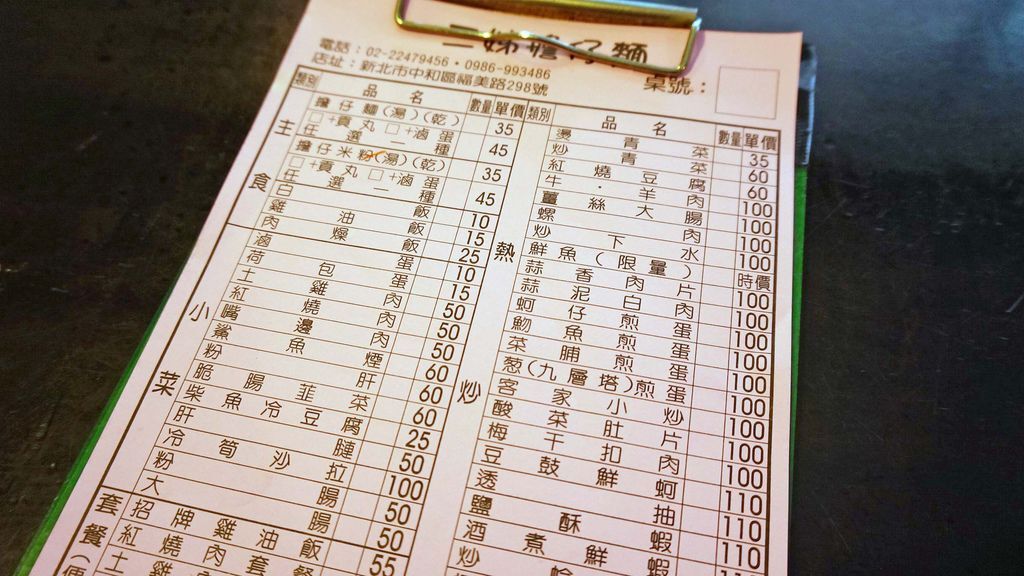 電話：02-22479456・0986-993486
店址：新北市中和區福美路298號
桌號：
類別 品名 數量 單價
主食
擔仔麵(湯)(乾) 35
□+貢丸 □+滷蛋 任選一種 45
擔仔米粉(湯)(乾) 35
□+貢丸 □+滷蛋 任選一種 45
白飯 10
雞油飯 15
肉燥飯 25
小菜
滷蛋 10
荷包蛋 15
土雞肉 50
紅燒肉 50
嘴邊肉 50
鯊魚煙 60
粉肝 60
脆腸韮菜 60
柴魚冷豆腐 25
肝腱 50
冷筍沙拉 100
粉腸 50
大腸 50
套餐
招牌雞油飯 55
紅燒肉套餐
類別 品名 數量 單價
熱炒
燙青菜 35
炒青菜 60
紅燒豆腐 60
牛．羊肉 100
薑絲大腸 100
螺肉 100
炒下水 100
鮮魚(限量) 時價
蒜香肉片 100
蒜泥白肉 100
蚵仔煎蛋 100
魩魚煎蛋 100
菜脯煎蛋 100
蔥(九層塔)煎蛋 100
客家小炒 100
酸菜肚片 100
梅干扣肉 100
豆鼓鮮蚵 110
透抽 110
鹽酥蝦 110
酒煮鮮蝦